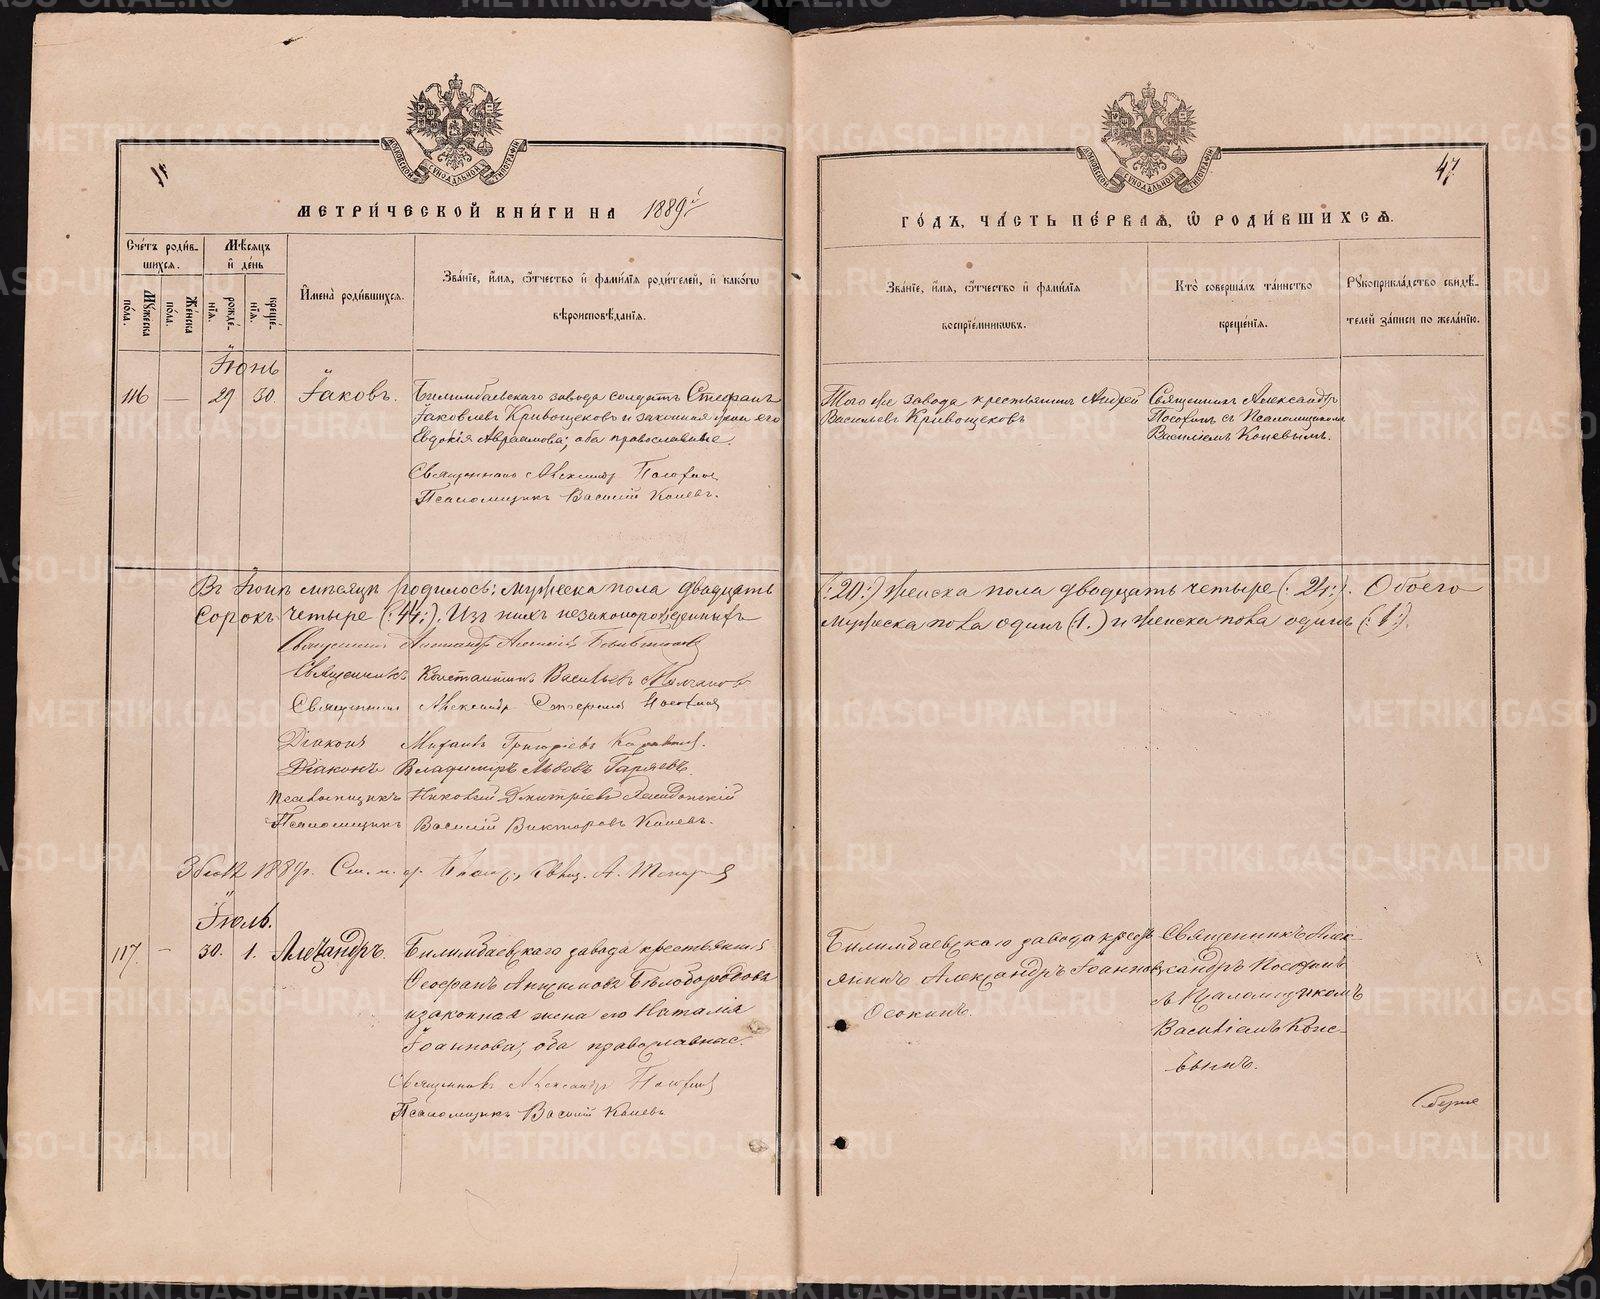 МОСКОВСКОЙ СУНОДАЛЬНОЙ ТИПОГРАФІИ
МЕТРИ́ЧЕСКОЙ КНИ́ГИ НА 1889й
Сче́тъ роди́в-
шихся.
Мѣсяцъ
и де́нь
Му́жеска
по́ла.
Же́нска
по́ла.
рожде́-
нія.
креще́-
нія.
Имена̀ роди́вшихся.
Зва́ніе, и́мя, о́тчество и фами́лія роди́телей, и како́гѡ
вѣроисповѣ́данія.
Іюнь
116 — 29 30 Іаковъ.
Билимбаевскаго завода солдатъ Стефанъ
Іаковлевъ Кривощековъ и законная жена его
Евдокія Авраамова; оба православные.
Священникъ Александръ
Псаломщикъ Василій Коневъ.
Въ Іюнѣ мѣсяцѣ родилось: мужеска пола двадцать
Сорокъ четыре (:44:). Изъ нихъ незаконорожденныхъ
Священникъ
Священникъ Константинъ Васильевъ
Священникъ Александръ
Діаконъ Михаилъ Григоріевъ
Діаконъ Владиміръ Львовъ Гаряевъ.
Псаломщикъ Николай Дмитріевъ
Псаломщикъ Василій Викторовъ Коневъ.
1889г.
Іюль.
117. — 30. 1. Александръ.
Билимбаевскаго завода крестьянинъ
Ѳеофанъ Бѣлобородовъ
и законная жена его Наталія
Іоаннова; оба православные.
Священникъ Александръ
Псаломщикъ Василій Коневъ
МОСКОВСКОЙ СУНОДАЛЬНОЙ ТИПОГРАФІИ
47
ГО́ДЪ, ЧА́СТЬ ПЕ́РВАЯ, Ѡ РОДИ́ВШИХСЯ.
Зва́ніе, и́мя, о́тчество и фами́лія
воспріе́мниковъ.
Кто̀ соверша́лъ та́инство
креще́нія.
Рукоприкла́дство свидѣ́-
телей за́писи по жела́нію.
Того же завода крестьянинъ Андрей
Васильевъ Кривощековъ
Священникъ Александръ
съ Псаломщикомъ
Василіемъ Коневымъ.
(:20:) женска пола двадцать четыре (:24:). Обоего
мужеска пола одинъ (:1.) и женска пола одинъ (:1:).
Билимбаевскаго завода крестъ
янинъ Александръ Іоанновъ
Осокинъ.
Священникъ Алек-
сандръ
съ Псаломщикомъ
Василіемъ Коне-
вымъ.
METRIKI.GASO-URAL.RU